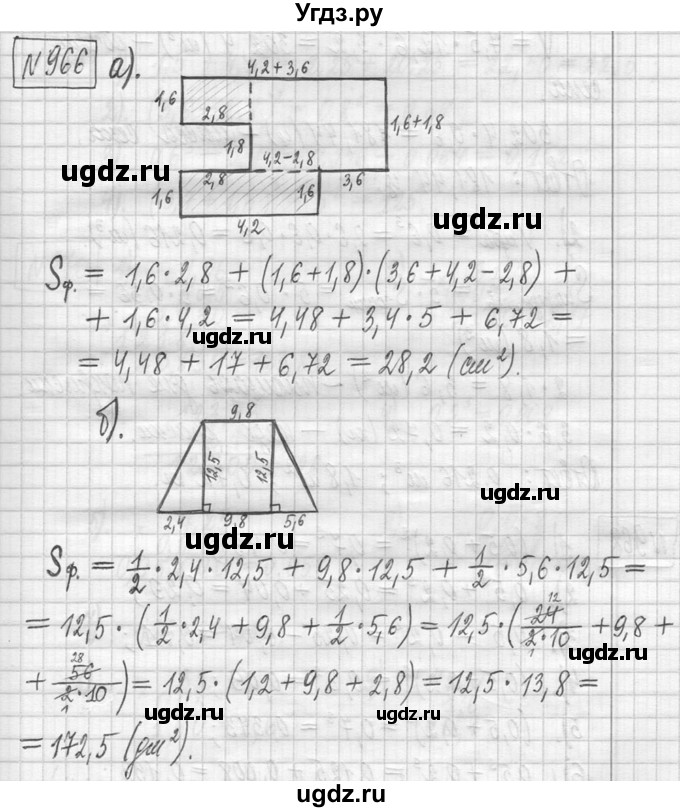 Угдз.ру
№966 а).
4,2+3,6
1,6
2,8
1,8
1,6+1,8
4,2-2,8
2,8
1,6
3,6
1,6
4,2
ugdz.ru
ugdz.ru
Sф. = 1,6·2,8 + (1,6+1,8)·(3,6+4,2-2,8) +
+ 1,6·4,2 = 4,48 + 3,4·5 + 6,72 =
= 4,48 + 17 + 6,72 = 28,2 (см²).
ugdz.ru
ugdz.ru
б).
9,8
12,5
12,5
ugdz.ru
2,4 9,8 5,6
ugdz.ru
Sф. = 1/2·2,4·12,5 + 9,8·12,5 + 1/2·5,6·12,5 =
= 12,5·(1/2·2,4 + 9,8 + 1/2·5,6) = 12,5·(24 12/2·10 1 + 9,8 +
ugdz.ru
ugdz.ru
+ 56 28/2·10 1) = 12,5·(1,2 + 9,8 + 2,8) = 12,5·13,8 =
ugdz.ru
ugdz.ru
= 172,5 (дм²).
ugdz.ru